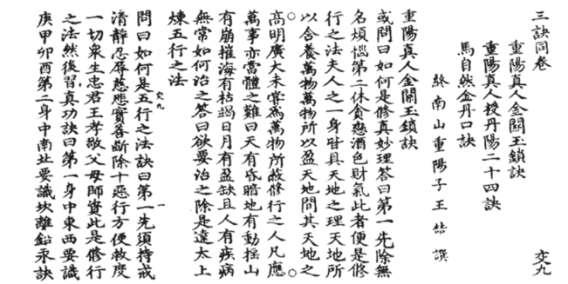 三訣同卷 交九
重陽真人金關玉鎖訣
重陽真人授丹陽二十四訣
馬自然金丹口訣
終南山重陽子王喆譔
重陽真人金關玉鎖訣
或問曰如何是修真妙理答曰第一先除無
名煩惱第二休貪戀酒色財氣此者便是修
行之法夫人之一身皆具天地之理天地所
以含養萬物萬物所以盈天地間其天地之
高明廣大未嘗為萬物所蔽修行之人凡應
萬事亦當體之難曰天有昏暗地有動搖山
有崩摧海有枯竭日月有盈缺且人有疾病
無常如何治之答曰欲要治之除是達太上
煉五行之法
交九 一
問曰如何是五行之法訣曰第一先須持戒
清靜忍辱慈悲實善斷除十惡行方便救度
一切衆生忠君王孝敬父母師資此是修行
之法然後習真功訣曰第一身中東西要識
庚甲卯酉第二身中南北要識坎離鉛汞訣